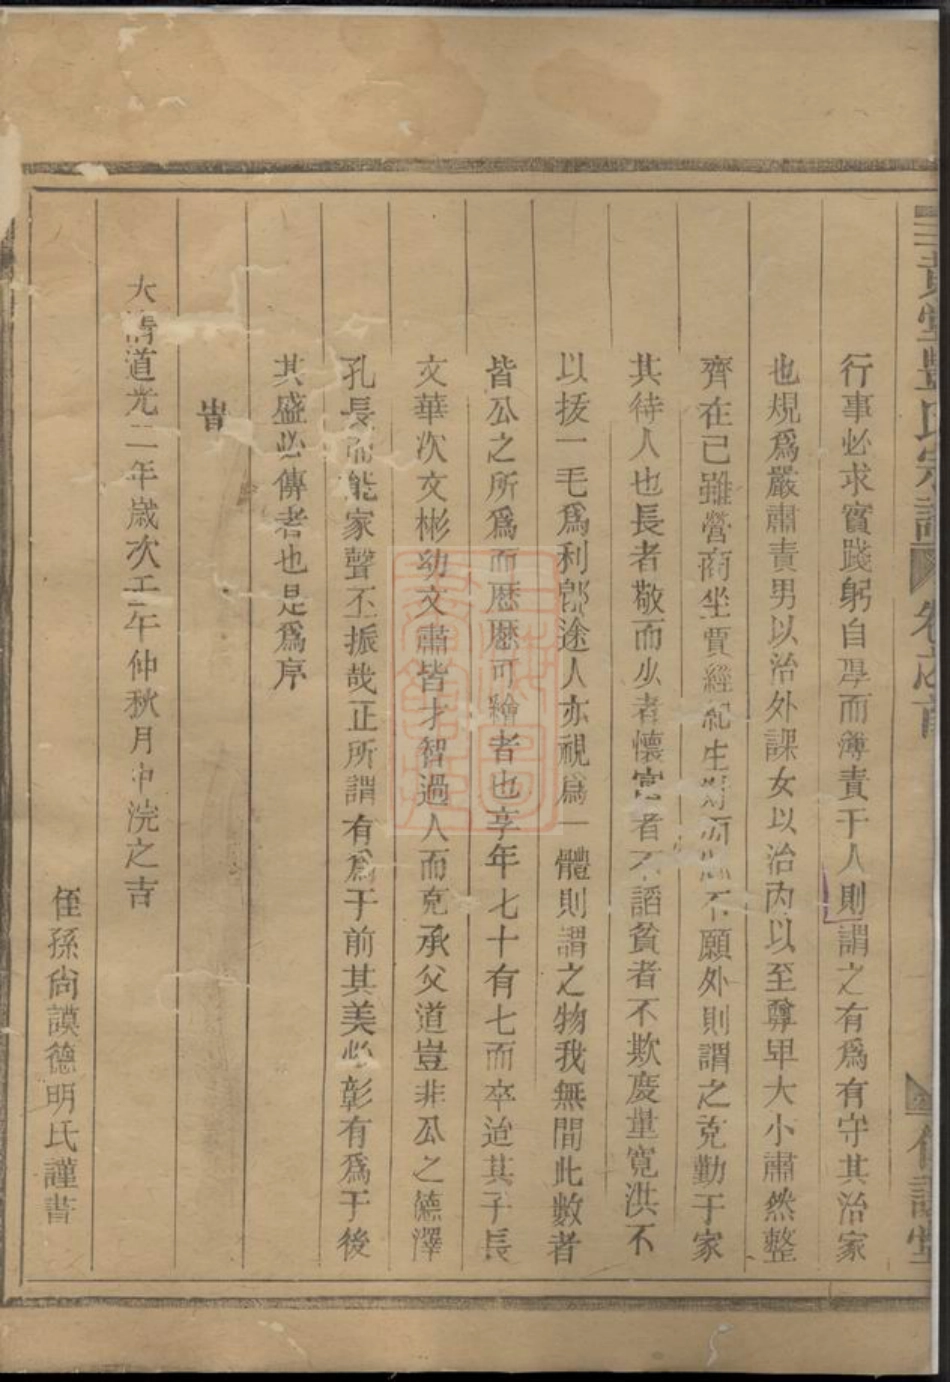 黃堂豐氏宗譜 卷之首
行事必求實踐躬自厚而薄責于人則謂之有爲有守其治家
也規爲嚴肅責男以治外課女以治內以至尊卑大小肅然整
齊在己雖營商坐賈經紀生財而不願外則謂之克勤于家
其待人也長者敬而少者懷富者不諂貧者不欺度量寬洪不
以拔一毛爲利卽途人亦視爲一體則謂之物我無間此數者
皆公之所爲而歷歷可繪者也享年七十有七而卒迨其子長
文華次文彬幼文肅皆才智過人而克承父道豈非公之德澤
孔長而能家聲丕振哉正所謂有爲于前其美必彰有爲于後
其盛必傳者也是爲序
旹
大清道光二年歲次壬午仲秋月中浣之吉
侄孫尙謨德明氏謹書